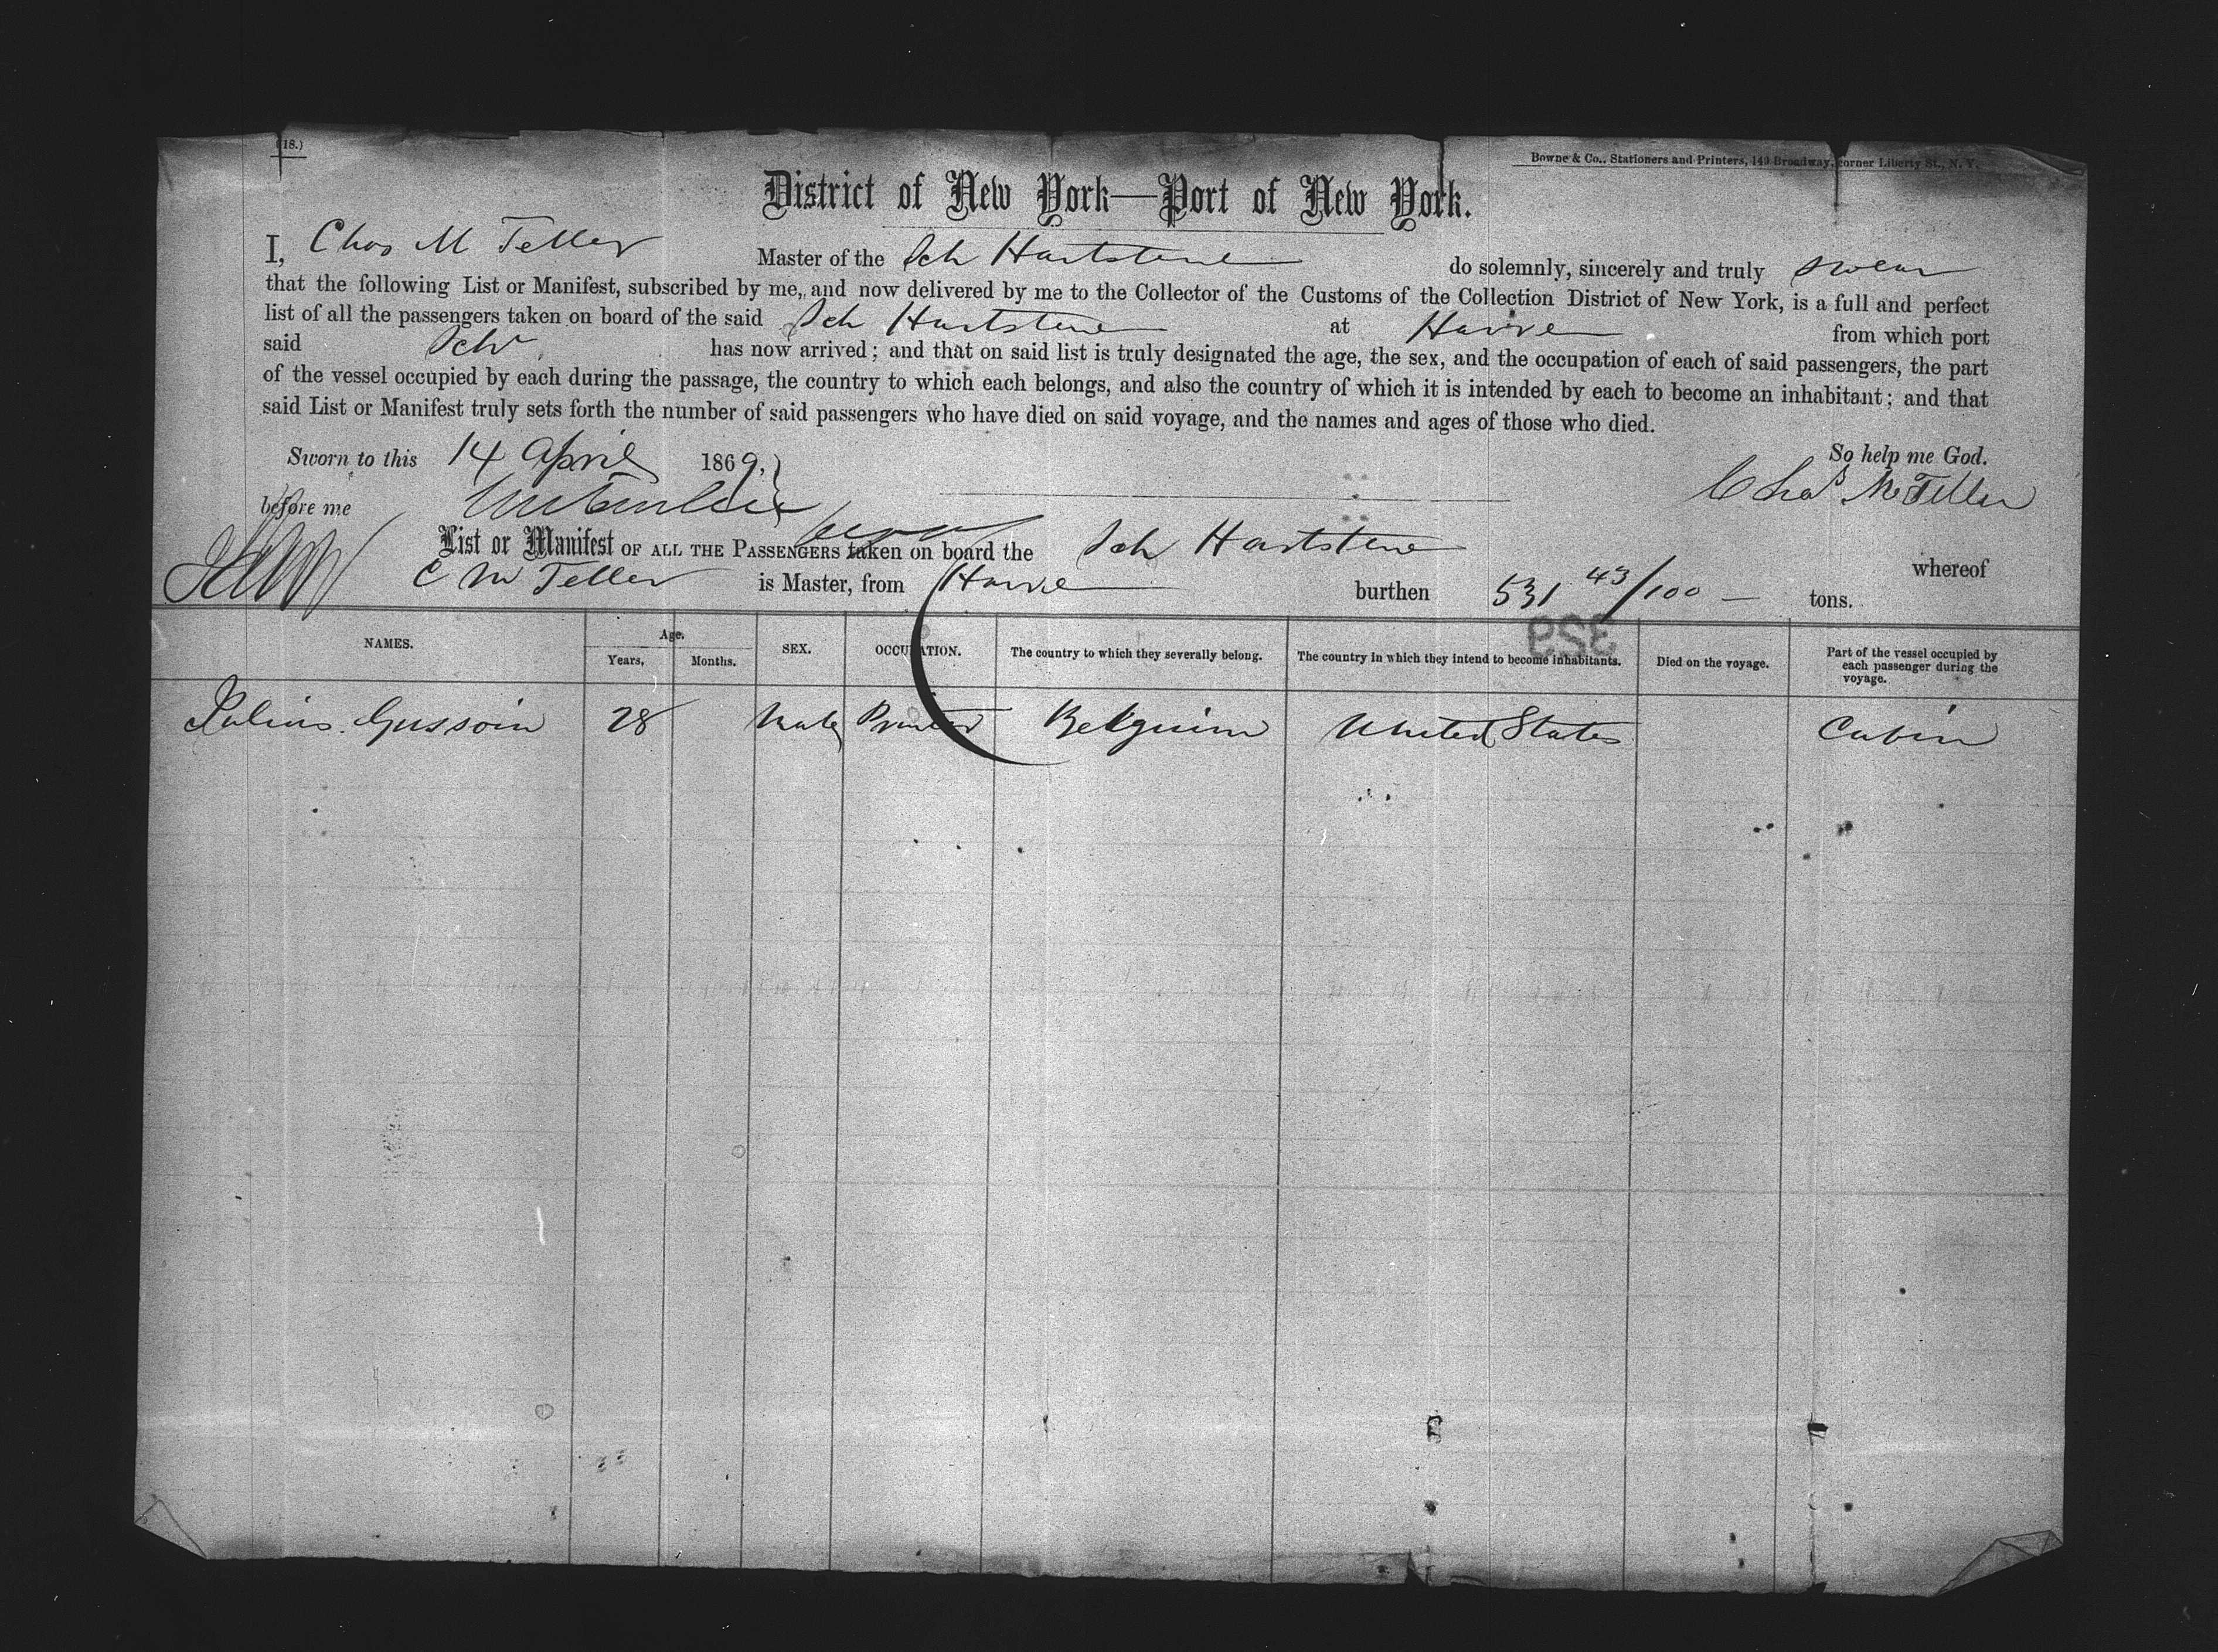 (18.)
Bowne & Co., Stationers and Printers, 149 Broadway, corner Liberty St., N. Y.
District of New York—Port of New York.
I, Chas M Teller Master of the Sch Hartstene do solemnly, sincerely and truly swear
that the following List or Manifest, subscribed by me, and now delivered by me to the Collector of the Customs of the Collection District of New York, is a full and perfect
list of all the passengers taken on board of the said Sch Hartstene at Havre from which port
said Schr has now arrived; and that on said list is truly designated the age, the sex, and the occupation of each of said passengers, the part
of the vessel occupied by each during the passage, the country to which each belongs, and also the country of which it is intended by each to become an inhabitant; and that
said List or Manifest truly sets forth the number of said passengers who have died on said voyage, and the names and ages of those who died.
Sworn to this 14 April 1869, So help me God.
before me Chas M Teller
List or Manifest OF ALL THE PASSENGERS taken on board the Sch Hartstene whereof
C M Teller is Master, from Havre burthen 531 43/100 tons.
329
NAMES. Age. Years, Months. SEX. OCCUPATION. The country to which they severally belong. The country in which they intend to become inhabitants. Died on the voyage. Part of the vessel occupied by each passenger during the voyage.
Julius Gussoin 28 Male Printer Belguim United States Cabin